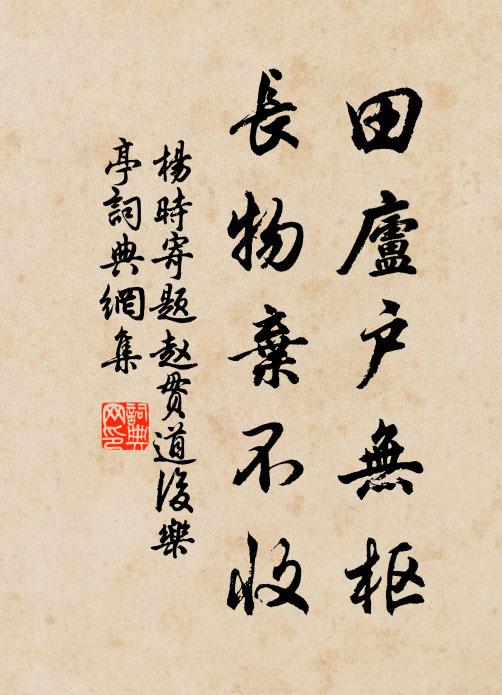 田廬户無枢
長物棄不收
楊時寄题赵贯道後樂
亭詞典網集
詞典网印